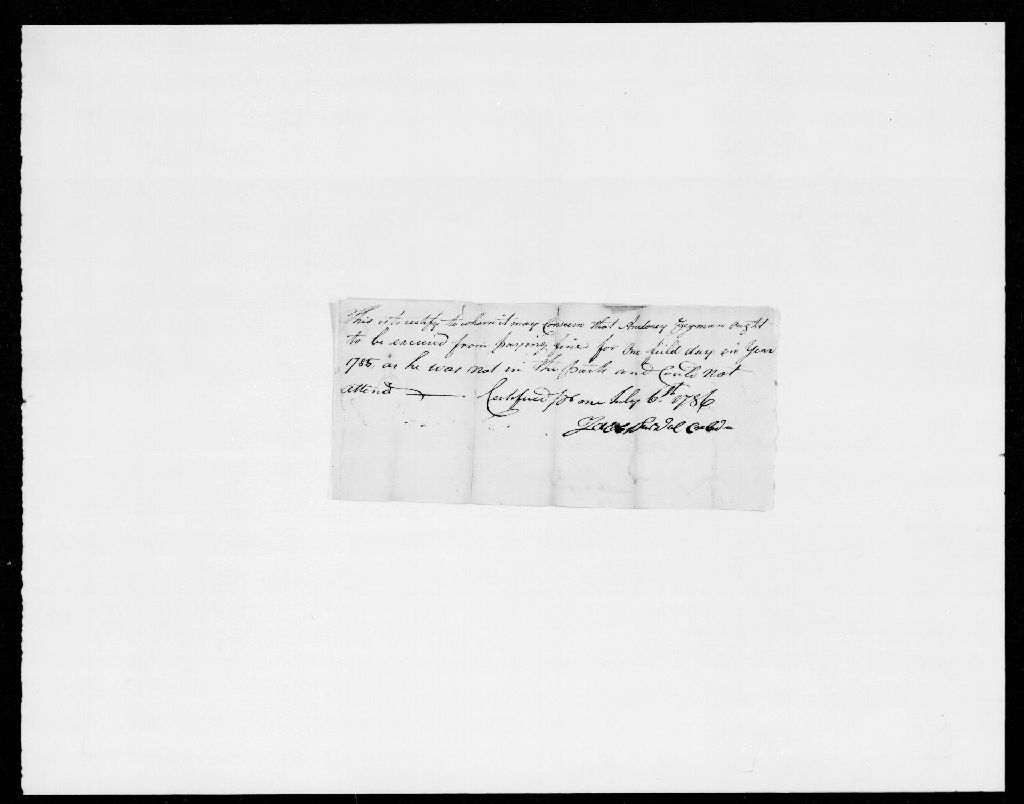 This is to certify to whom it may Consern that Andoney Zeyman ought
to be excused from paying fine for one feild day in Year
1785 as he was not in the parts and Could not
attend — Certifued pr me July 6th 1786